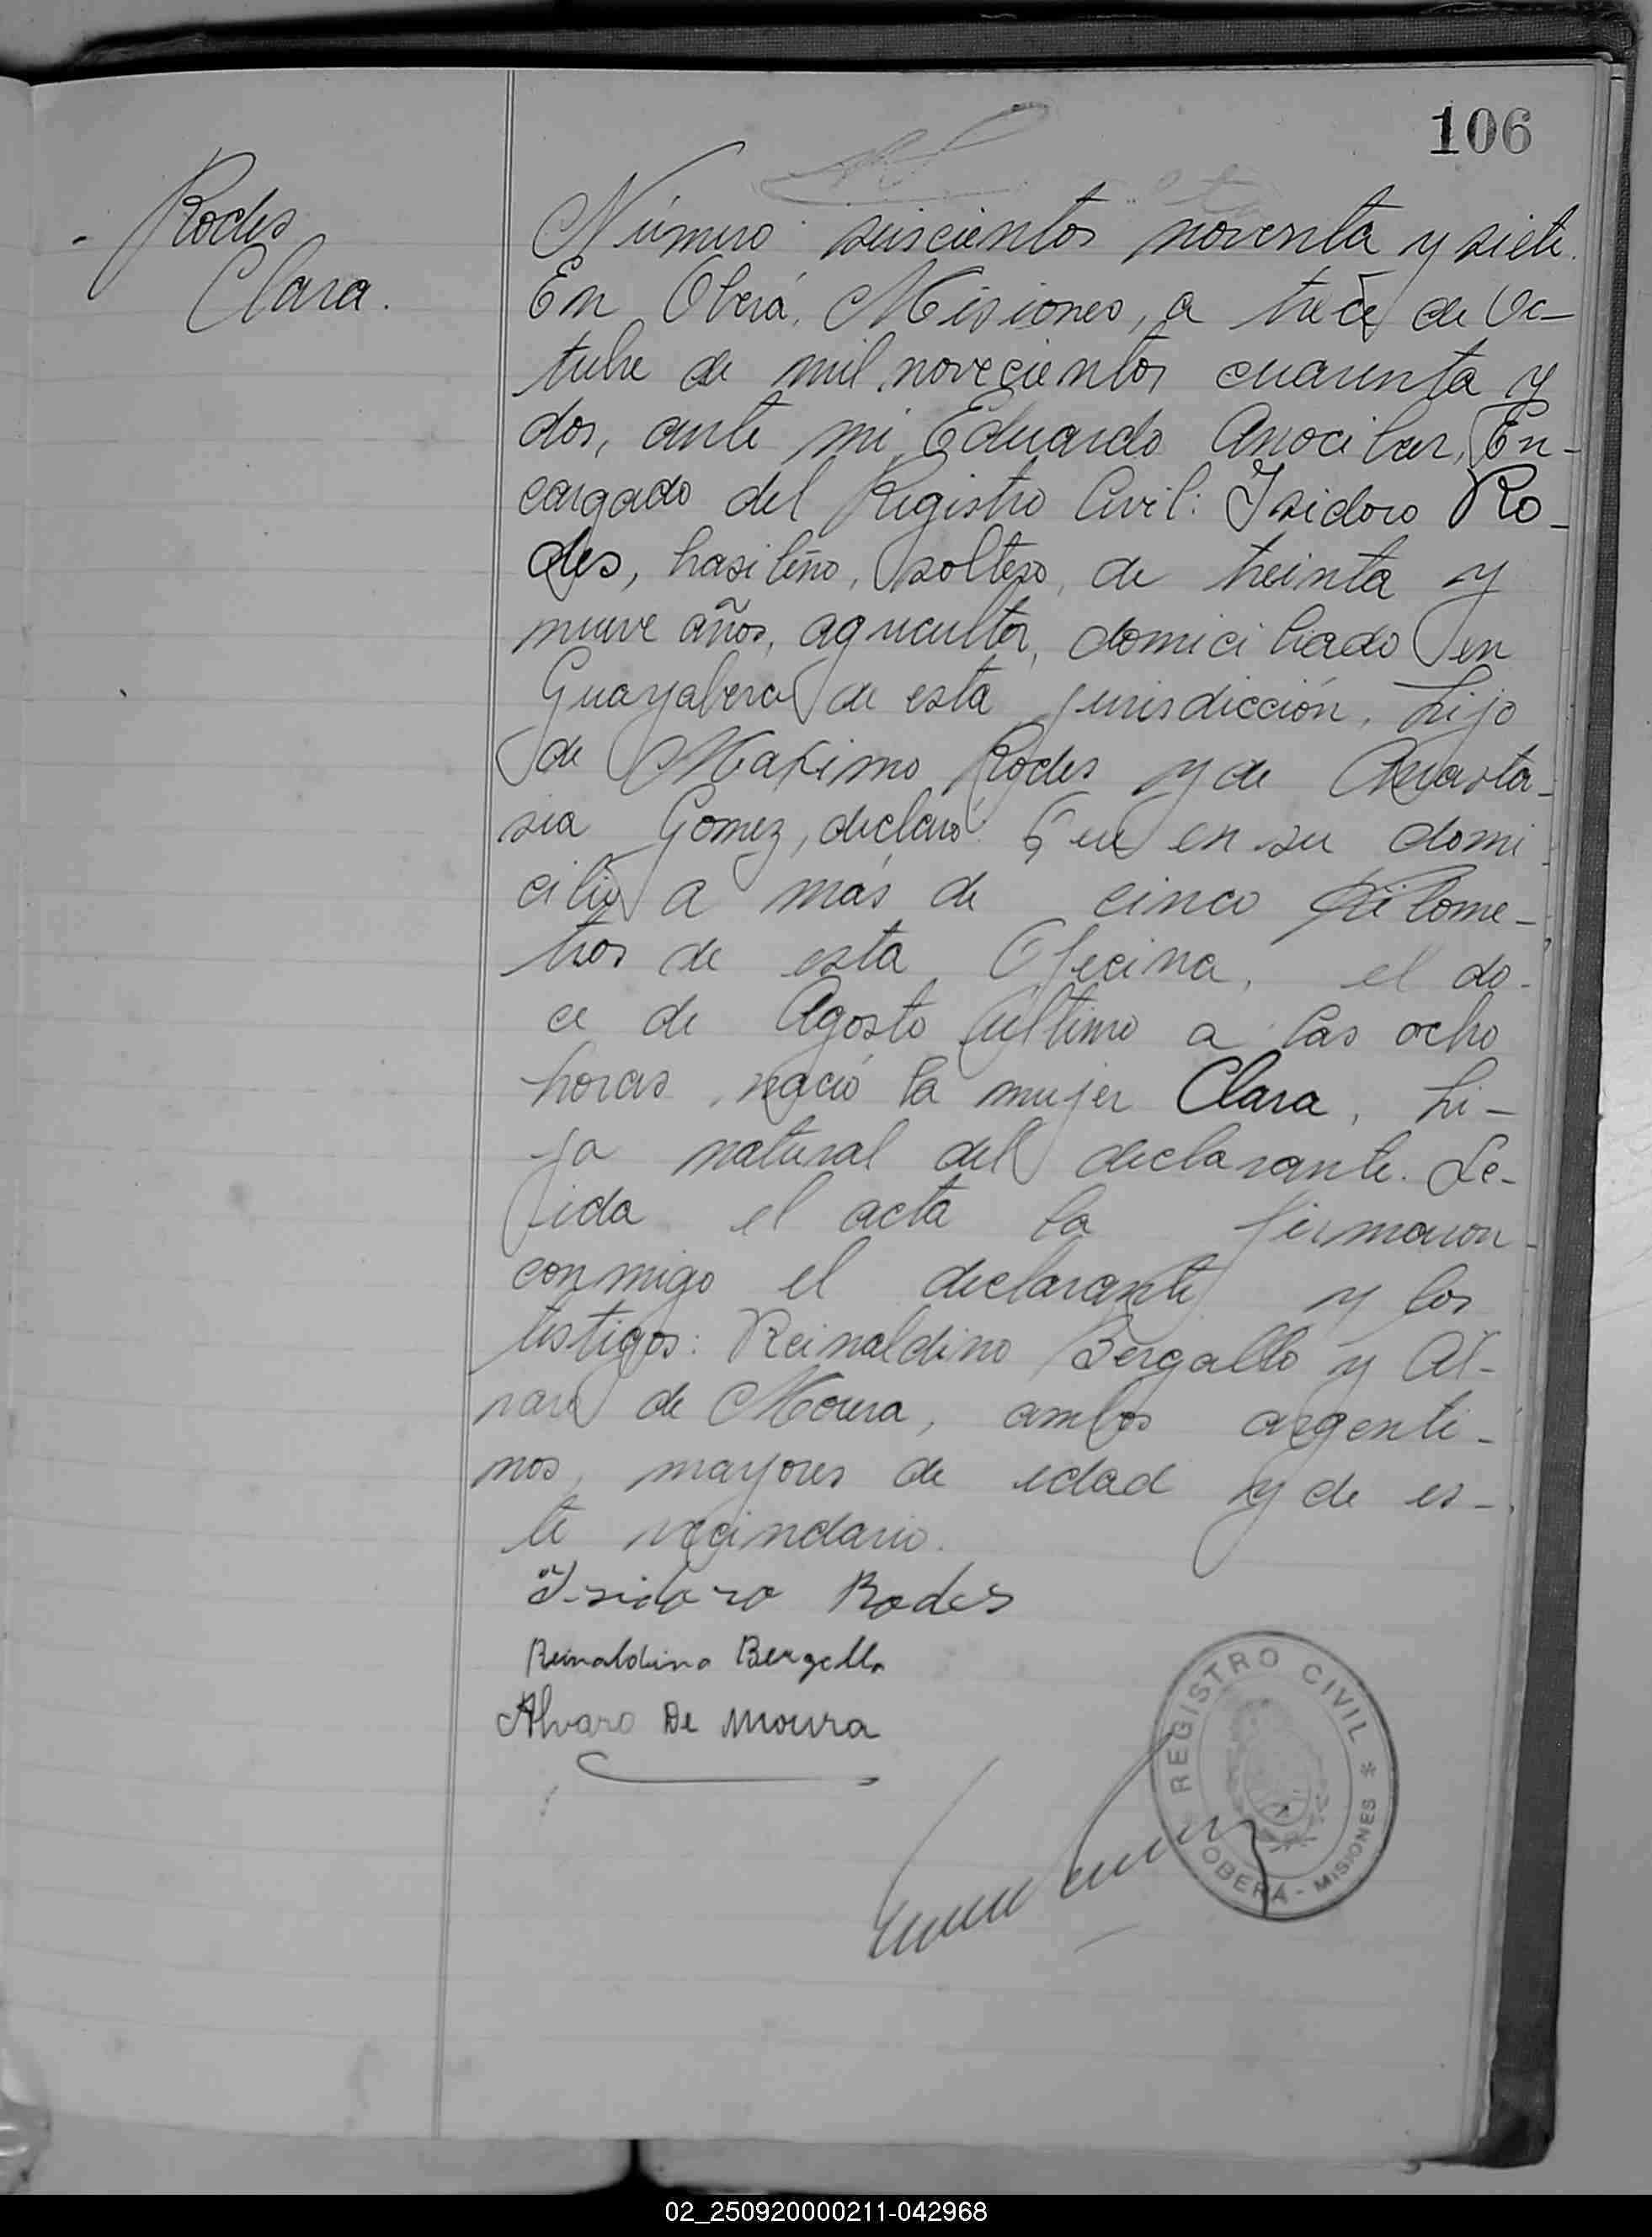 106
Rodes
Clara.
Número seiscientos noventa y siete.
En Oberá, Misiones, a trece de Oc-
tubre de mil novecientos cuarenta y
dos, ante mi Eduardo Anocibar, En-
cargado del Registro Civil: Isidoro Ro-
des, brasileño, soltero, de treinta y
nueve años, agricultor, domiciliado en
Guayabera de esta jurisdicción, hijo
de Maximo Rodes y de Anasta-
sia Gomez, declaró: Que en su domi-
cilio a más de cinco kilome-
tros de esta Oficina, el do-
ce de Agosto último a las ocho
horas, nació la mujer Clara, hi-
ja natural del declarante. Le-
ida el acta la firmaron
conmigo el declarante y los
testigos: Reinaldino Bergallo y Al-
varo de Moura, ambos argenti-
nos, mayores de edad y de es-
te vecindario.
Isidoro Rodes
Reinaldino Bergallo
Alvaro De Moura
REGISTRO CIVIL * OBERÁ - MISIONES
02_250920000211-042968